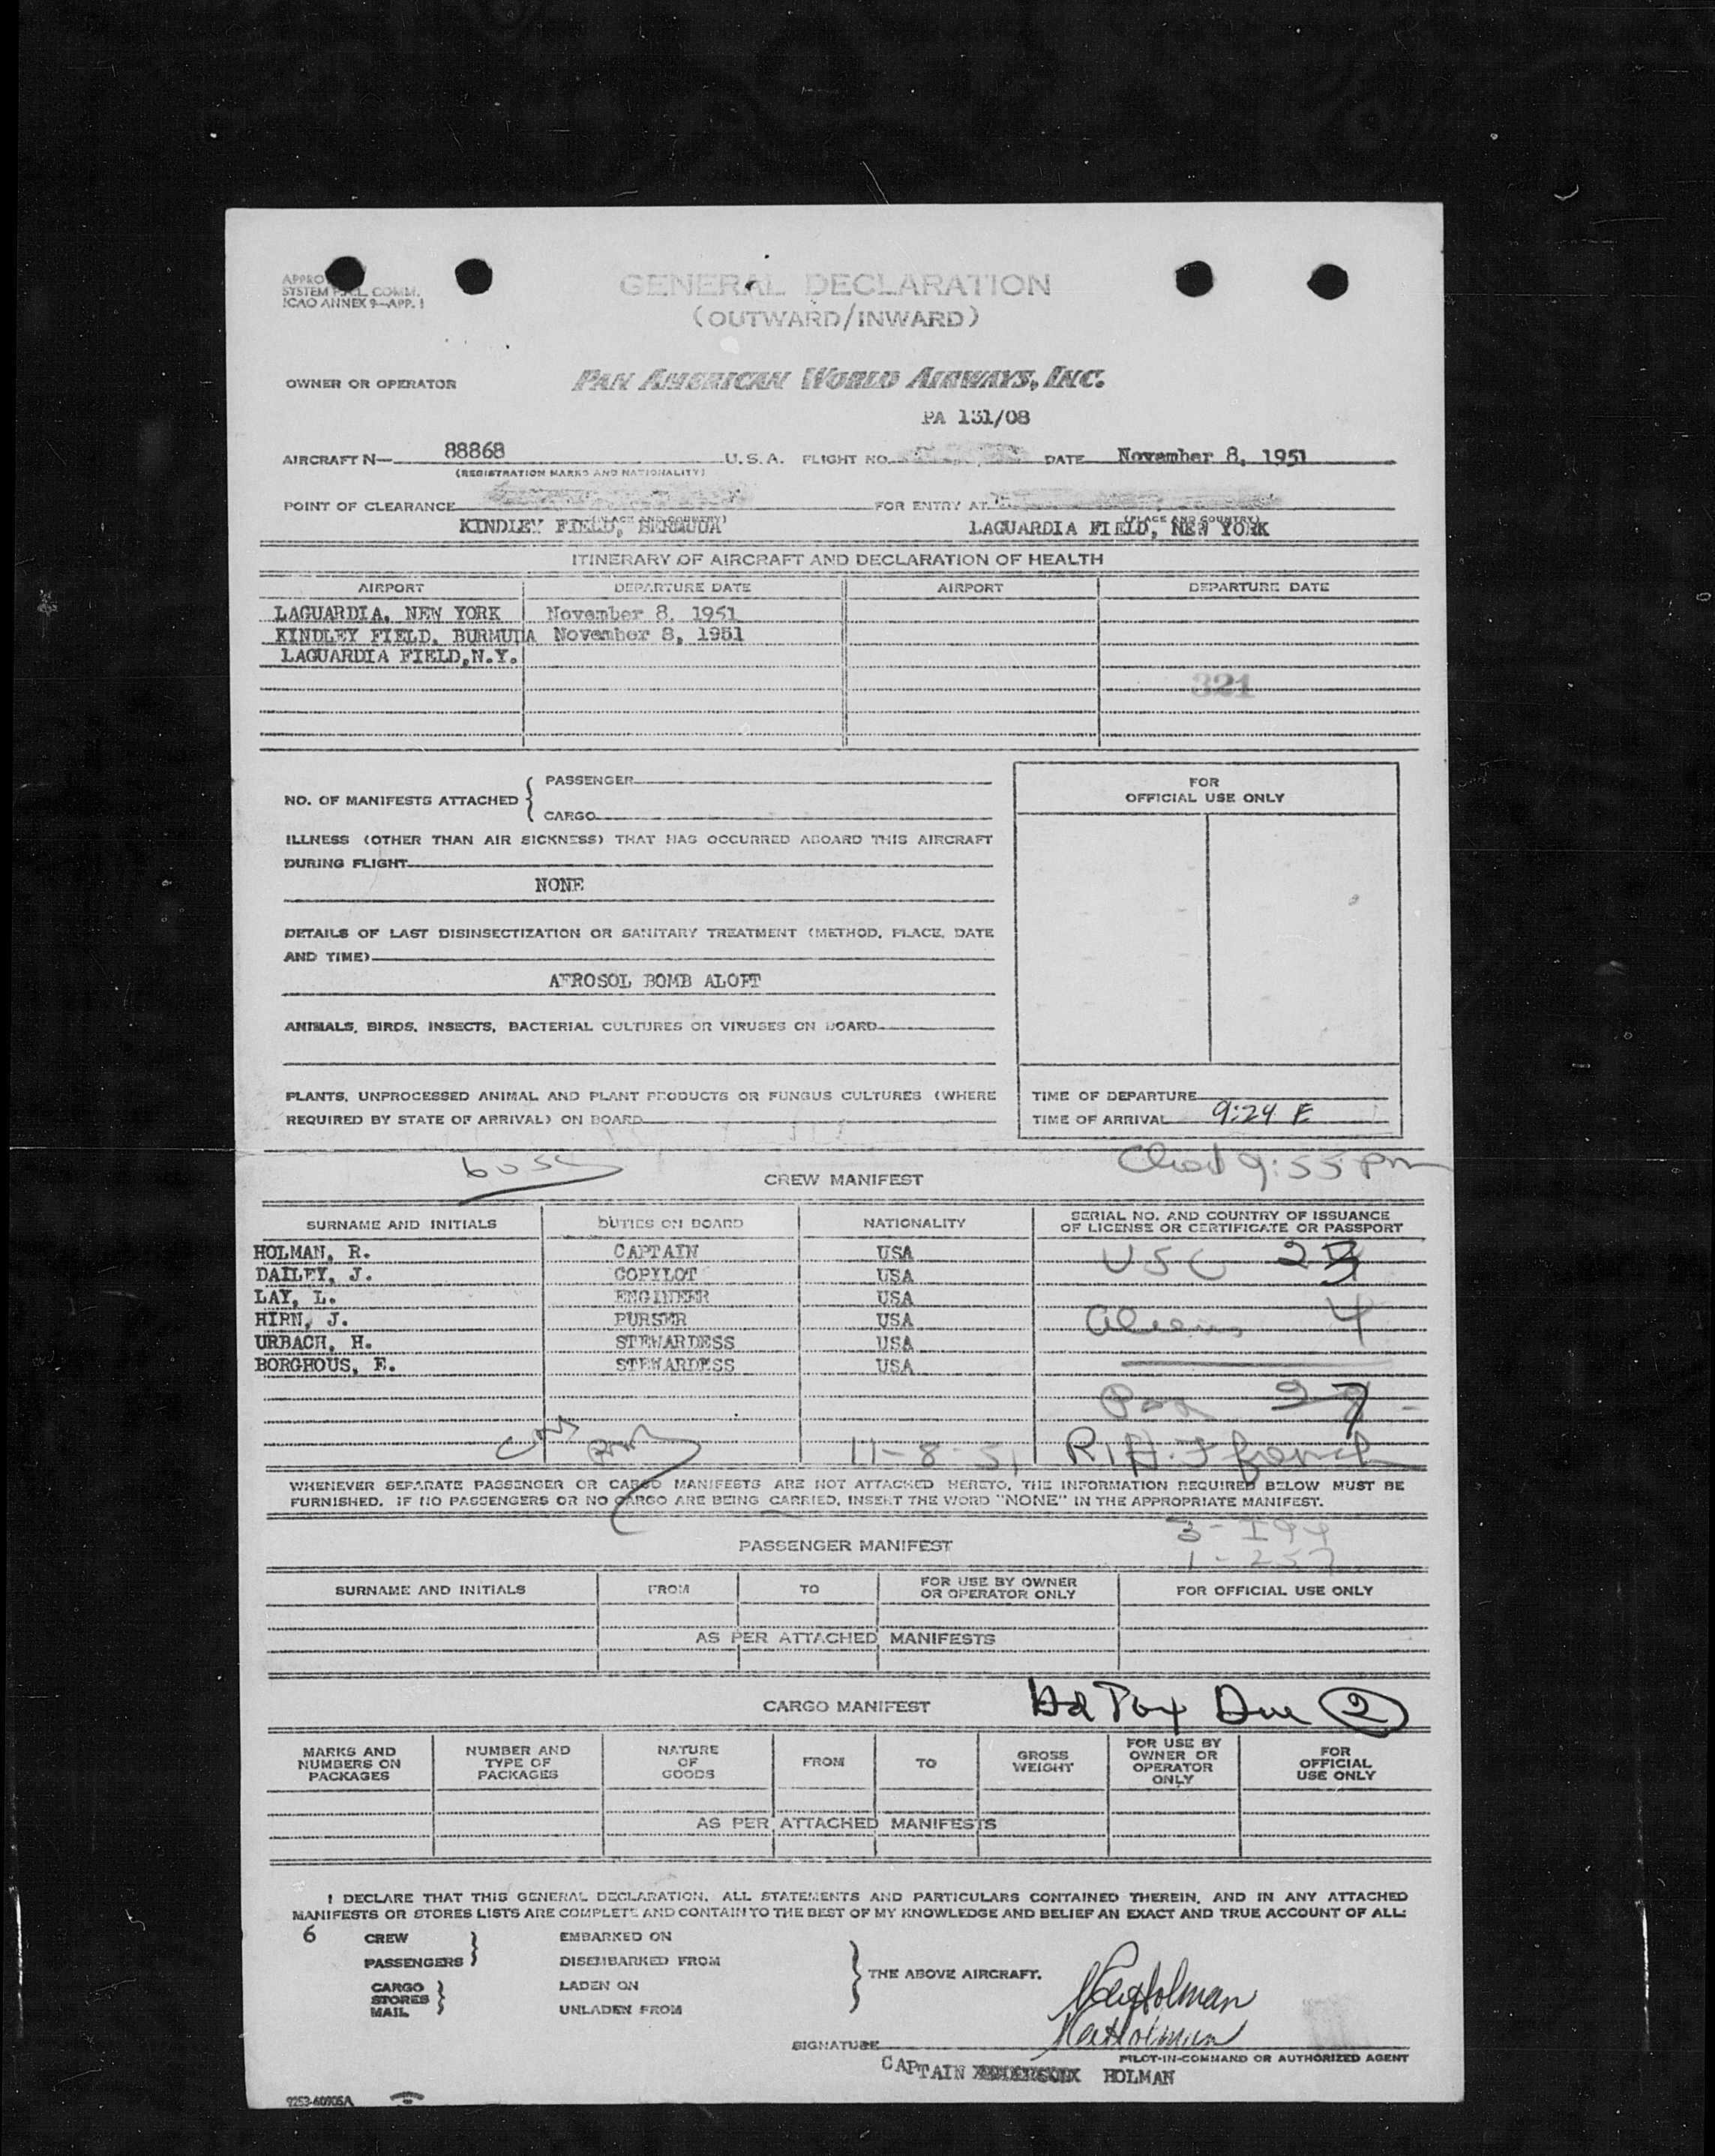 GENERAL DECLARATION
(OUTWARD/INWARD)
APPRO
SYSTEM F.A.L. COMM.
ICAO ANNEX 9—APP. 1
OWNER OR OPERATOR PAN AMERICAN WORLD AIRWAYS, INC.
PA 131/08
AIRCRAFT N— 88868 U.S.A. FLIGHT NO. DATE November 8, 1951
(REGISTRATION MARKS AND NATIONALITY)
POINT OF CLEARANCE FOR ENTRY AT
(PLACE AND COUNTRY) (PLACE AND COUNTRY)
KINDLEY FIELD, BERMUDA LAGUARDIA FIELD, NEW YORK
ITINERARY OF AIRCRAFT AND DECLARATION OF HEALTH
AIRPORT DEPARTURE DATE AIRPORT DEPARTURE DATE
LAGUARDIA, NEW YORK November 8, 1951
KINDLEY FIELD, BURMUDA November 8, 1951
LAGUARDIA FIELD,N.Y.
321
NO. OF MANIFESTS ATTACHED PASSENGER
CARGO
FOR
OFFICIAL USE ONLY
ILLNESS (OTHER THAN AIR SICKNESS) THAT HAS OCCURRED ABOARD THIS AIRCRAFT
DURING FLIGHT
NONE
DETAILS OF LAST DISINSECTIZATION OR SANITARY TREATMENT (METHOD, PLACE, DATE
AND TIME)
AEROSOL BOMB ALOFT
ANIMALS, BIRDS, INSECTS, BACTERIAL CULTURES OR VIRUSES ON BOARD
PLANTS, UNPROCESSED ANIMAL AND PLANT PRODUCTS OR FUNGUS CULTURES (WHERE
REQUIRED BY STATE OF ARRIVAL) ON BOARD
TIME OF DEPARTURE
TIME OF ARRIVAL 9:24 E
9:55 pm
CREW MANIFEST
SURNAME AND INITIALS DUTIES ON BOARD NATIONALITY SERIAL NO. AND COUNTRY OF ISSUANCE
OF LICENSE OR CERTIFICATE OR PASSPORT
HOLMAN, R. CAPTAIN USA USC 23
DAILEY, J. COPILOT USA
LAY, L. ENGINEER USA
HIRN, J. PURSER USA Aliens 4
URBACH, H. STEWARDESS USA
BORGHOUS, E. STEWARDESS USA
Pax 27
11-8-51
WHENEVER SEPARATE PASSENGER OR CARGO MANIFESTS ARE NOT ATTACHED HERETO, THE INFORMATION REQUIRED BELOW MUST BE
FURNISHED. IF NO PASSENGERS OR NO CARGO ARE BEING CARRIED, INSERT THE WORD "NONE" IN THE APPROPRIATE MANIFEST.
3 - I94
1 - 257
PASSENGER MANIFEST
SURNAME AND INITIALS FROM TO FOR USE BY OWNER
OR OPERATOR ONLY FOR OFFICIAL USE ONLY
AS PER ATTACHED MANIFESTS
CARGO MANIFEST Hd Tax Due 2
MARKS AND
NUMBERS ON
PACKAGES
NUMBER AND
TYPE OF
PACKAGES
NATURE
OF
GOODS
FROM
TO
GROSS
WEIGHT
FOR USE BY
OWNER OR
OPERATOR
ONLY
FOR
OFFICIAL
USE ONLY
AS PER ATTACHED MANIFESTS
I DECLARE THAT THIS GENERAL DECLARATION, ALL STATEMENTS AND PARTICULARS CONTAINED THEREIN, AND IN ANY ATTACHED
MANIFESTS OR STORES LISTS ARE COMPLETE AND CONTAIN TO THE BEST OF MY KNOWLEDGE AND BELIEF AN EXACT AND TRUE ACCOUNT OF ALL:
6 CREW EMBARKED ON
PASSENGERS DISEMBARKED FROM
THE ABOVE AIRCRAFT.
CARGO LADEN ON
STORES
MAIL UNLADEN FROM
Holman
Holman
SIGNATURE
PILOT-IN-COMMAND OR AUTHORIZED AGENT
CAPTAIN HOLMAN
9253-60905A